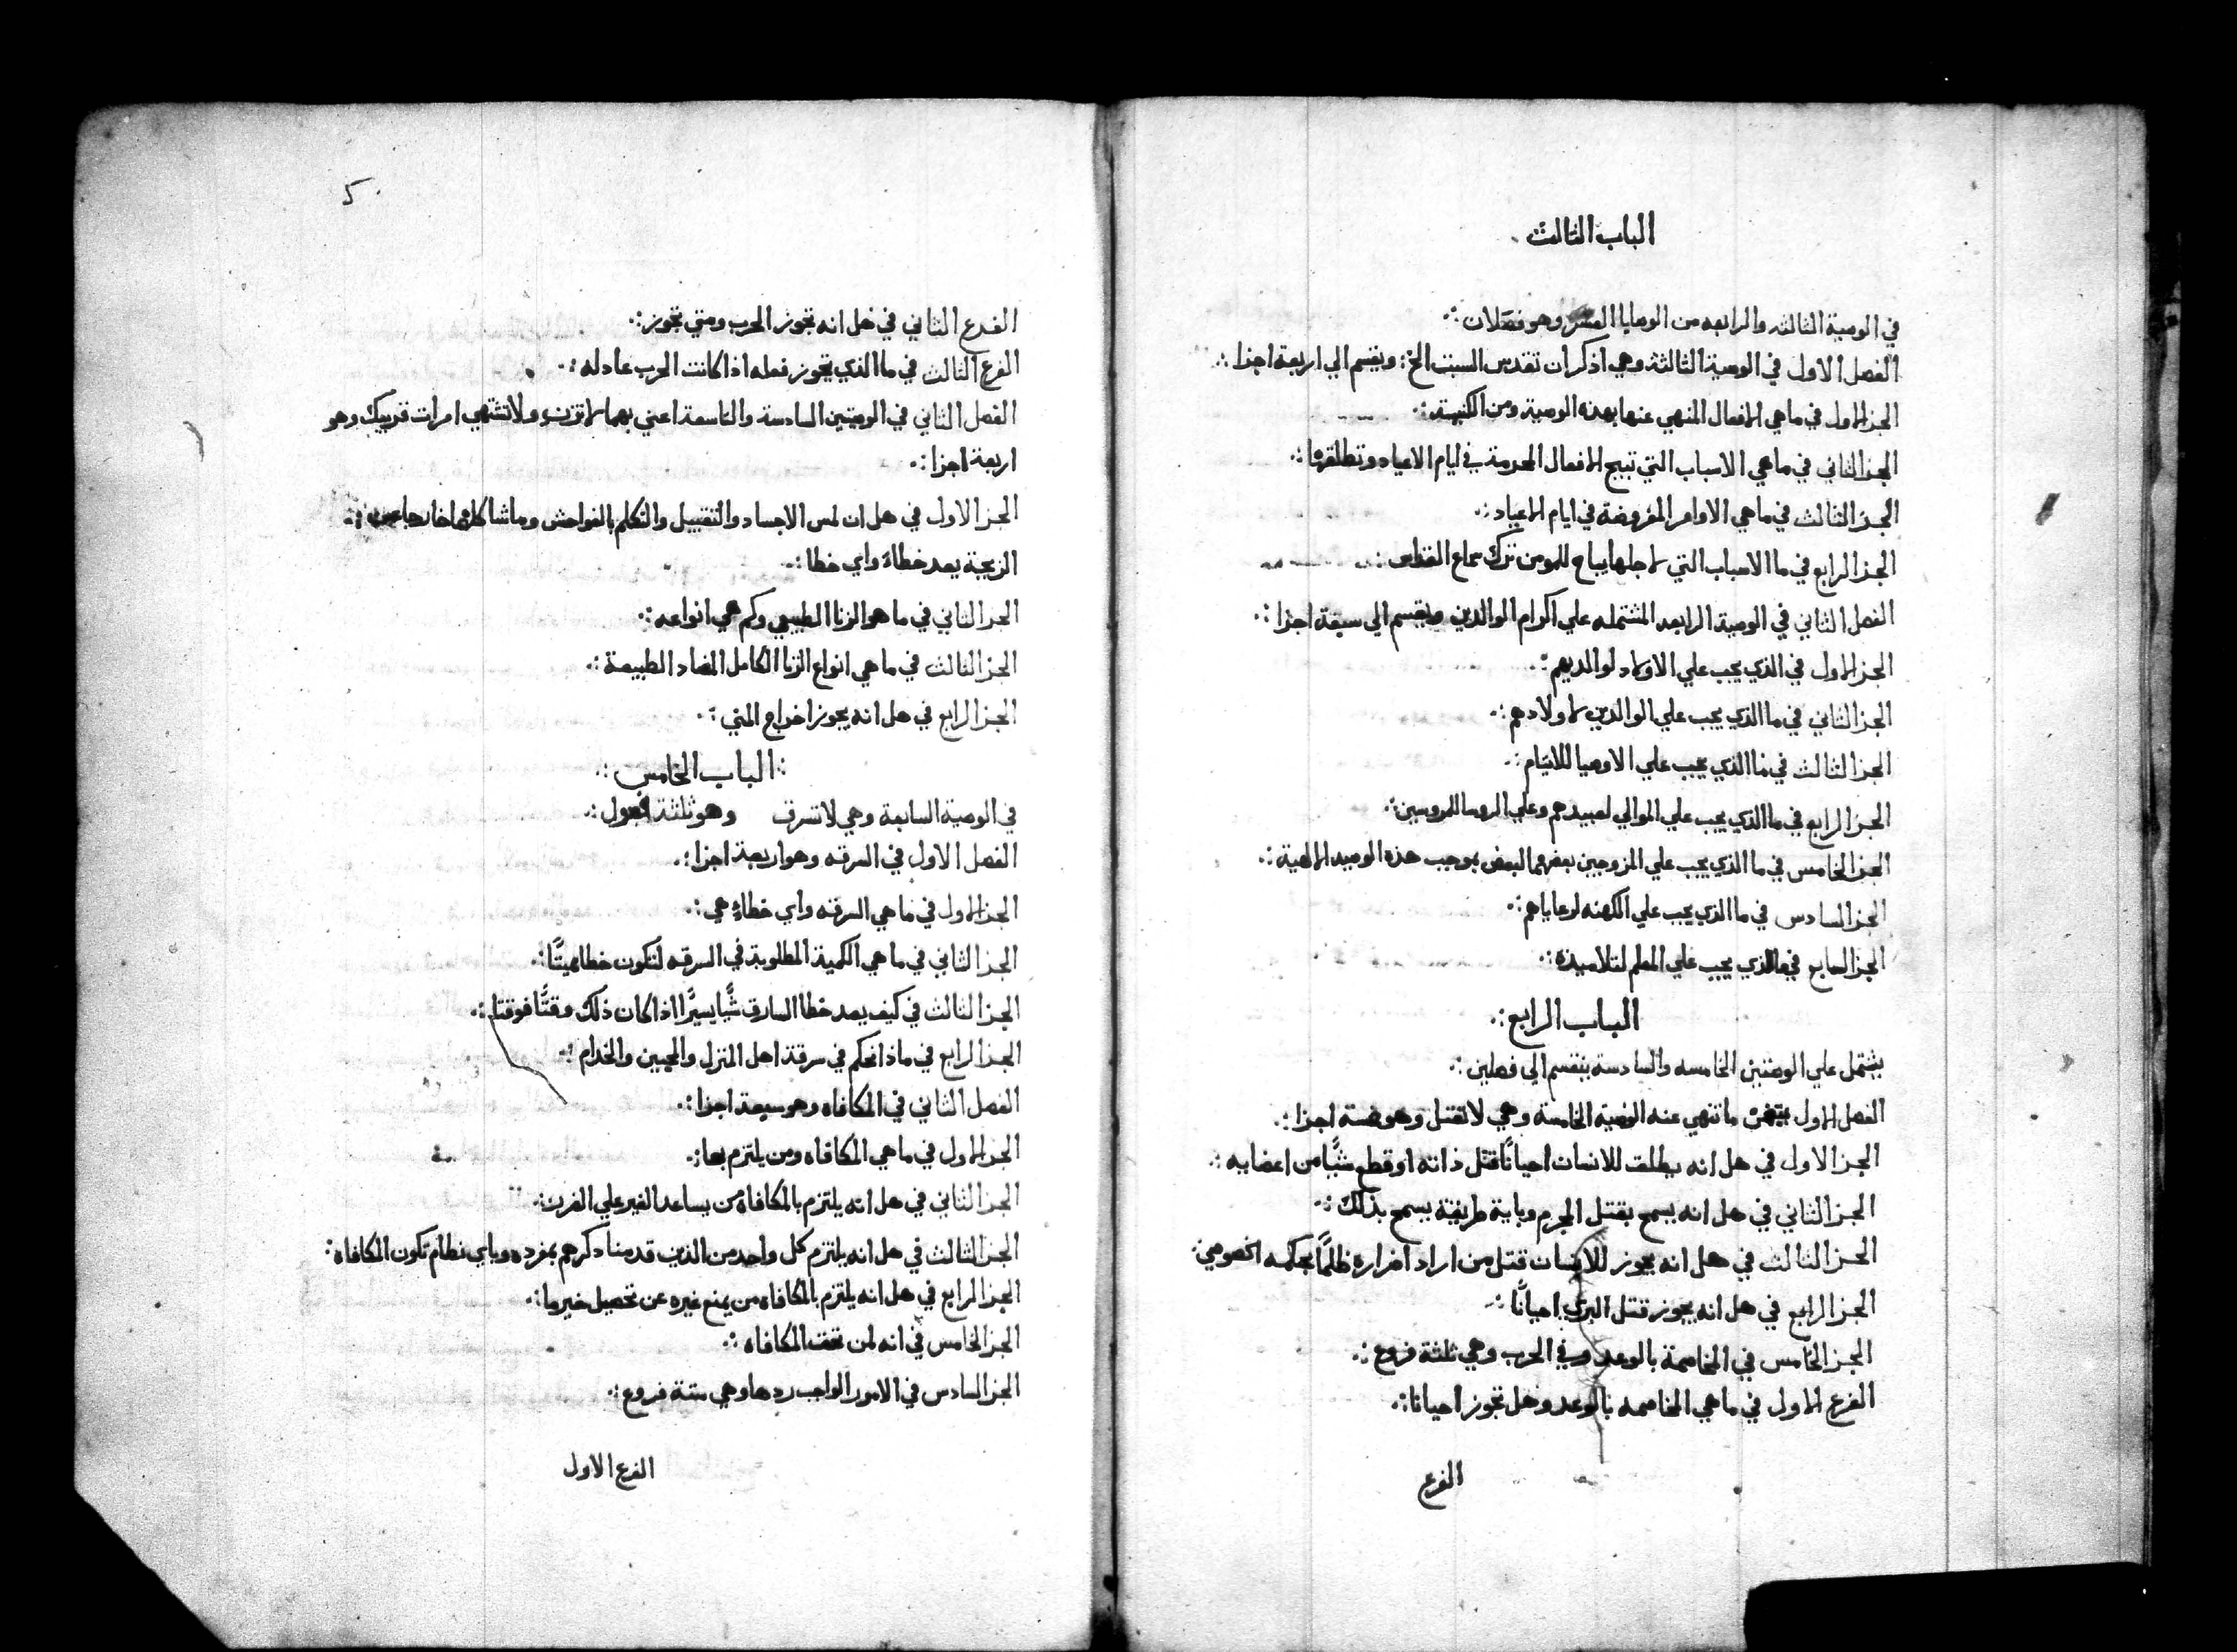 الباب الثالث
في الوصية الثالثه والرابعه من الوصايا العشر وهو فصلان
الفصل الاول في الوصية الثالثة وهي اذكر ان تقدس السبت الخ: ويقسم الي اربعة اجزا
الجز الاول في ما هي الافعال المنهي عنها بهذه الوصية ومن الكنيسة
الجز الثاني في ما هي الاسباب التي تبيح الافعال المحرمة في ايام الاعياد وتطلقها
الجز الثالث في ما هي الاوامر المفروضة في ايام الاعياد
الجز الرابع في ما الاسباب التي لاجلها يباح للمومن ترك سماع القداس
الفصل الثاني في الوصية الرابعه المشتمله علي اكرام الوالدين ويقسم الي سبعة اجزا
الجز الاول في الذي يجب علي الاولاد لوالديهم
الجز الثاني في ما الذي يجب علي الوالدين لاولادهم
الجز الثالث في ما الذي يجب علي الاوصيا للايتام
الجز الرابع في ما الذي يجب علي الموالي لعبيدهم وعلي الروسا للمروسين
الجز الخامس في ما الذي يجب علي المزوجين بعضهما لبعض بموجب هذه الوصيه الالهية
الجز السادس في ما الذي يجب علي الكهنه لرعاياهم
الجز السابع في ما الذي يجب علي المعلم لتلاميذه
الباب الرابع
يشتمل علي الوصيتين الخامسه والسادسة ينقسم الي فصلين
الفصل الاول يتضمن ما تنهي عنه الوصية الخامسة وهي لا تقتل وهو خمسة اجزا
الجز الاول في هل انه يطلق للانسان احيانًا قتل ذاته او قطع شيًا من اعضايه
الجز الثاني في هل انه يسمح بقتل المجرم وباية طريقة يسمح بذلك
الجز الثالث في هل انه يجوز للانسان قتل من اراد اضراره ظلمًا بحكمه الخصوصي
الجز الرابع في هل انه يجوز قتل البري احيانًا
الجز الخامس في المخاصمة بالوعد وفي الحرب وهي ثلثة فروع
الفرع الاول في ما هي المخاصمه بالوعد وهل تجوز احيانا
الفرع
٥
الفرع الثاني في هل انه تجوز الحرب ومتي تجوز
الفرع الثالث في ما الذي يجوز فعله اذا كانت الحرب عادله
الفصل الثاني في الوصيتين السادسة والتاسعة اعني بهما لا تزن ولا تشتهي امرات قريبك وهو
اربعة اجزا
الجز الاول في هل ان لمس الاجساد والتقبيل والتكلم بالفواحش وما شاكلها خارجا عن
الزيجة يعد خطاة واي خطا
الجز الثاني في ما هو الزنا الطبيعي وكم هي انواعه
الجز الثالث في ما هي انواع الزنا الكامل المضاد الطبيعة
الجز الرابع في هل انه يجوز اخراج المني
الباب الخامس
في الوصية السابعة وهي لا تسرق وهو ثلثة فصول
الفصل الاول في السرقه وهو اربعة اجزا
الجز الاول في ما هي السرقه واي خطاة هي
الجز الثاني في ما هي الكمية المطلوبة في السرقه لتكون خطا مميتًا
الجز الثالث في كيف يعد خطا السارق شيًا يسيرًا اذا كان ذلك وقتًا فوقتا
الجز الرابع في ماذا نحكم في سرقة اهل المنزل والمحبين والخدام
الفصل الثاني في المكافاه وهو سبعة اجزا
الجز الاول في ما هي المكافاه ومن يلتزم بها
الجز الثاني في هل انه يلتزم بالمكافاة من يساعد الغير علي الضرر
الجز الثالث في هل انه يلتزم كل واحد من الذين قدمنا ذكرهم بمفرده وباي نظام تكون المكافاة
الجز الرابع في هل انه يلتزم بالمكافاه من يمنع غيره عن تحصيل خير ما
الجز الخامس في انه لمن تحق المكافاه
الجز السادس في الامور الواجب ردها وهي ستة فروع
الفرع الاول